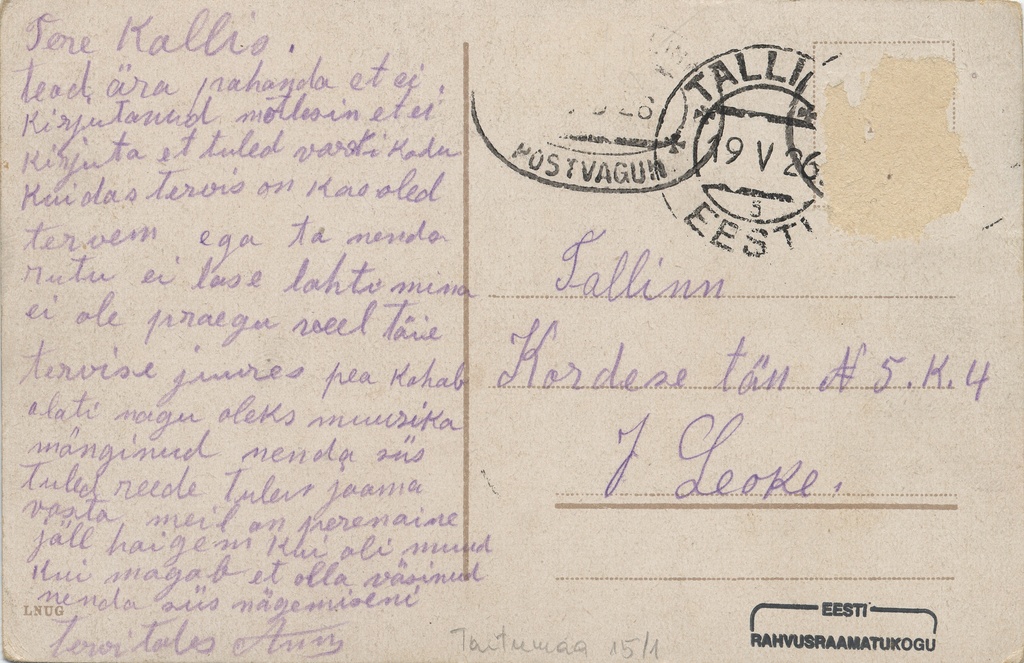 Tere Kallis.
tead ära pahanda et ei
kirjutanud mõtlesin et ei
kirjuta et tuled varsti kodu
kuidas tervis on kas oled
tervem ega ta nenda
rutu ei lase lahti mina
ei ole praegu veel täie
tervise juures pea kohab
alati nagu oleks muusika
mänginud nenda siis
tuled reede tulen jaama
vasta meil on perenaine
jäll haigem kui oli muud
kui magab et olla väsinud
nenda siis nägemiseni
tervitates
LNUG
POSTVAGUN
TALLINN
19 V 26
EESTI
Tallinn
Kordese tän № 5. K. 4
J Leoke.
15/1
EESTI
RAHVUSRAAMATUKOGU